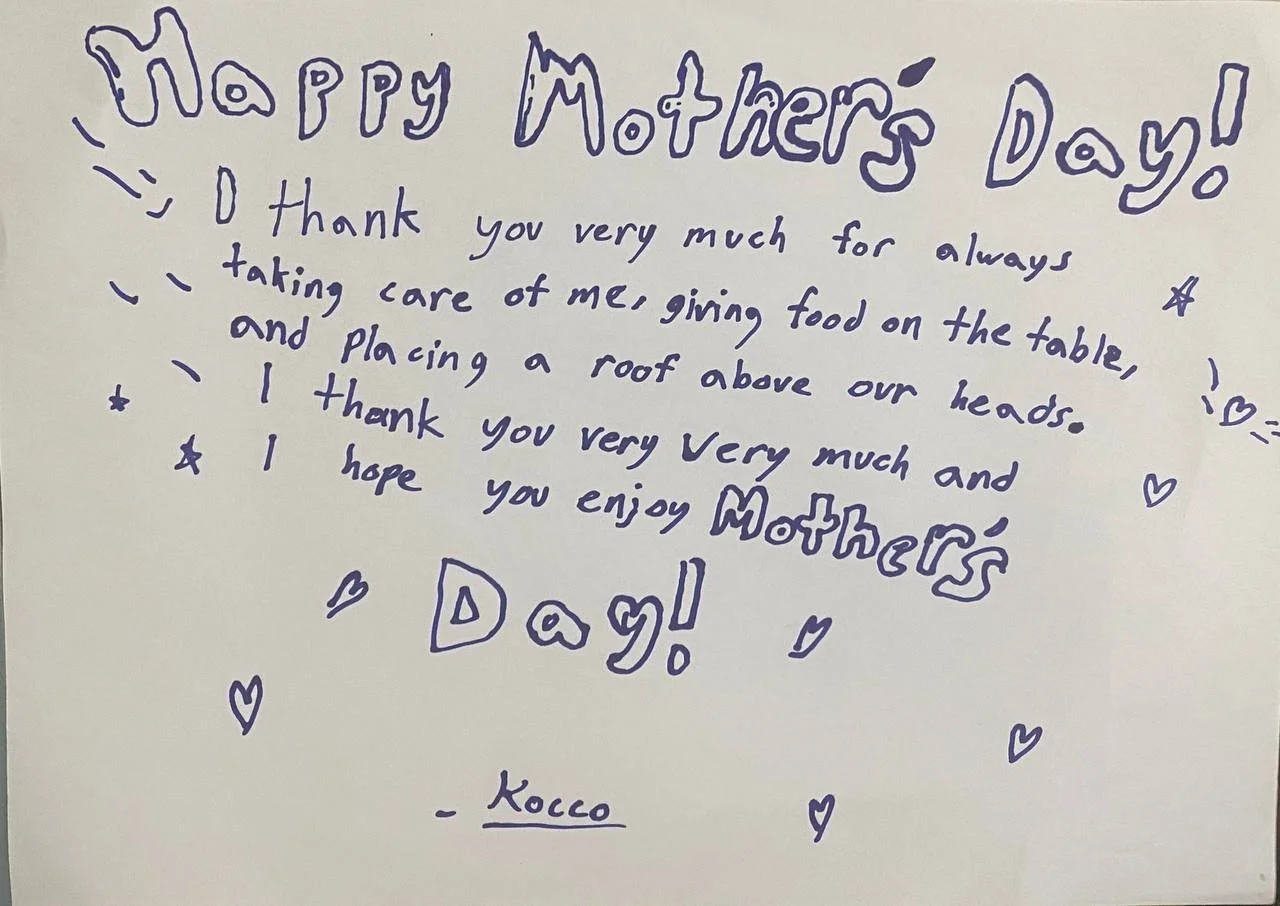 Happy Mother's Day!
I thank you very much for always
taking care of me, giving food on the table,
and placing a roof above our heads.
I thank you very very much and
I hope you enjoy Mother's
Day!
- Kocco